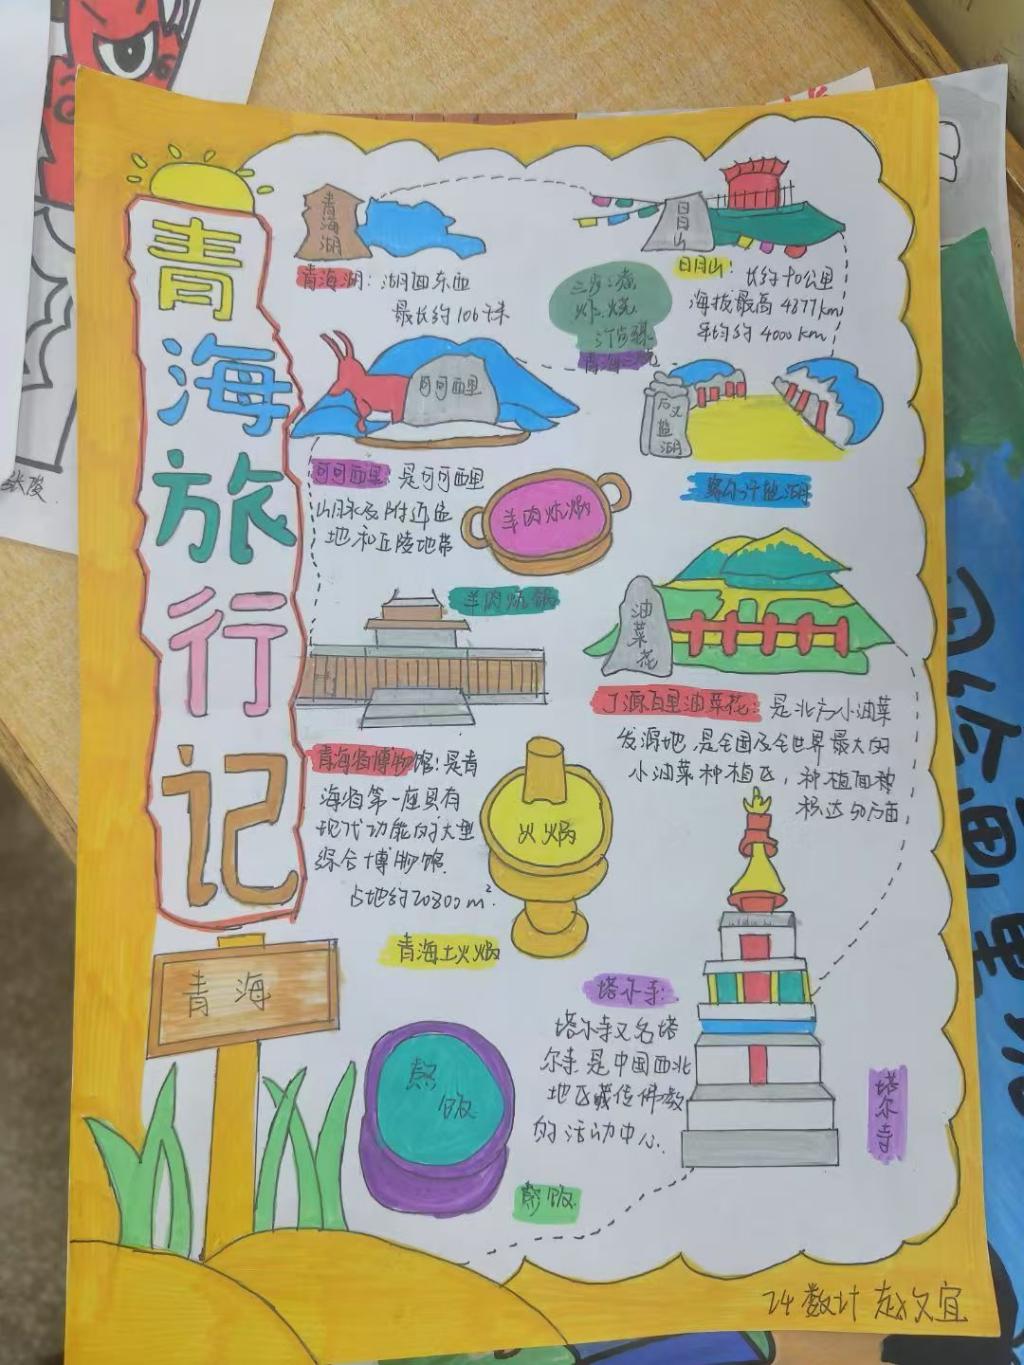 青海旅行记
青海湖
青海湖：湖面东西
最长约106千米
日月山
日月山：
长约90公里
海拔最高4877km
平均约4000km
青海三烧
可可西里
可可西里：是可可西里
山脉及附近盆
地和丘陵地带
盐湖
察尔汗盐湖
羊肉炕锅
羊肉炕锅
油菜花
门源百里油菜花：是北方小油菜
发源地，是全国及全世界最大的
小油菜种植区，种植面积
积达50万亩
青海省博物馆：是青
海省第一座具有
现代功能的大型
综合博物馆.
占地约20800m².
火锅
青海土火锅
塔尔寺：
塔尔寺又名塔
尔寺是中国西北
地区藏传佛教
的活动中心.
塔尔寺
青海
熬饭
熬饭
24数计 赵文宜
张俊